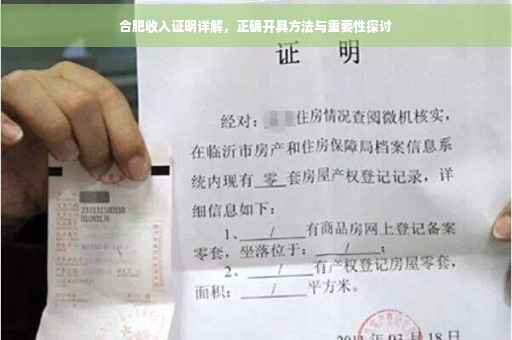 合肥收入证明详解，正确开具方法与重要性探讨
证 明
经对：住房情况查阅微机核实，
在临沂市房产和住房保障局档案信息系
统内现有 零 套房屋产权登记记录，详
细信息如下：
1、 / 有商品房网上登记备案
零套，坐落位于： / ；
2、 / 有产权登记房屋零套，
面积： / 平方米。
03 月 18 日